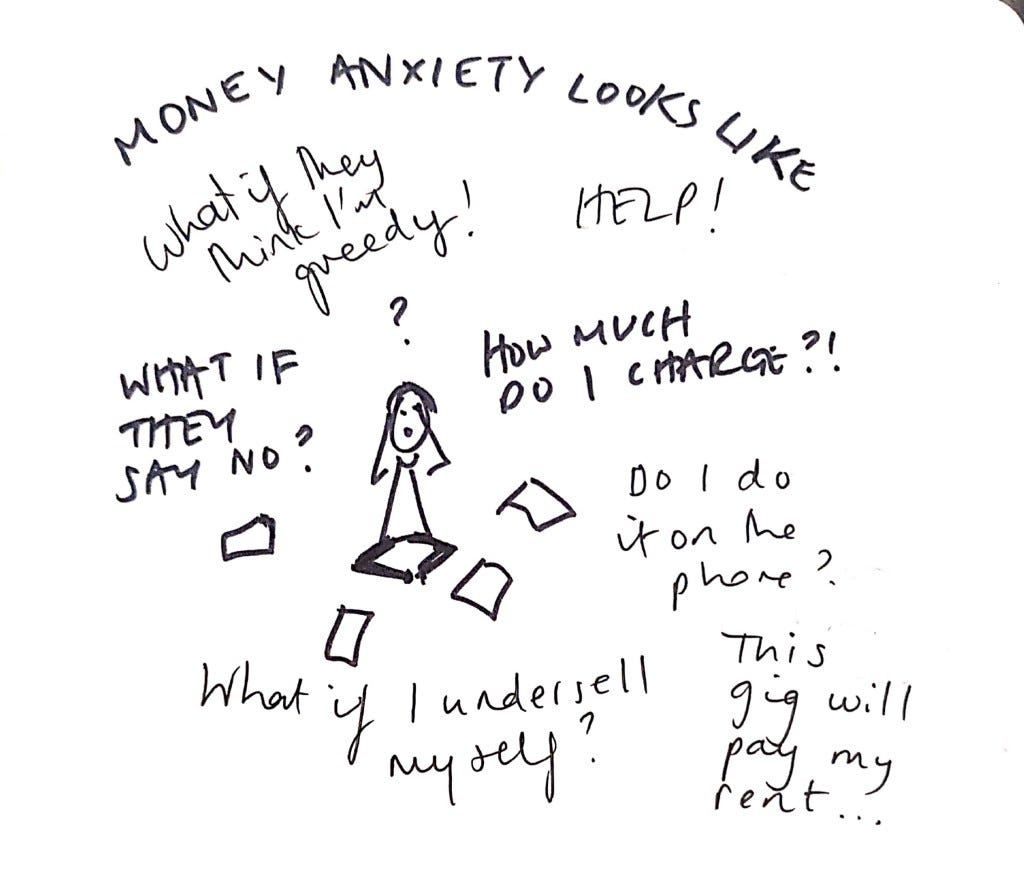 MONEY ANXIETY LOOKS LIKE
What if they
think I'm
greedy!
HELP!
?
HOW MUCH
DO I CHARGE?!
WHAT IF
THEY
SAY NO?
Do I do
it on the
phone?
What if I undersell
myself?
This
gig will
pay my
rent...